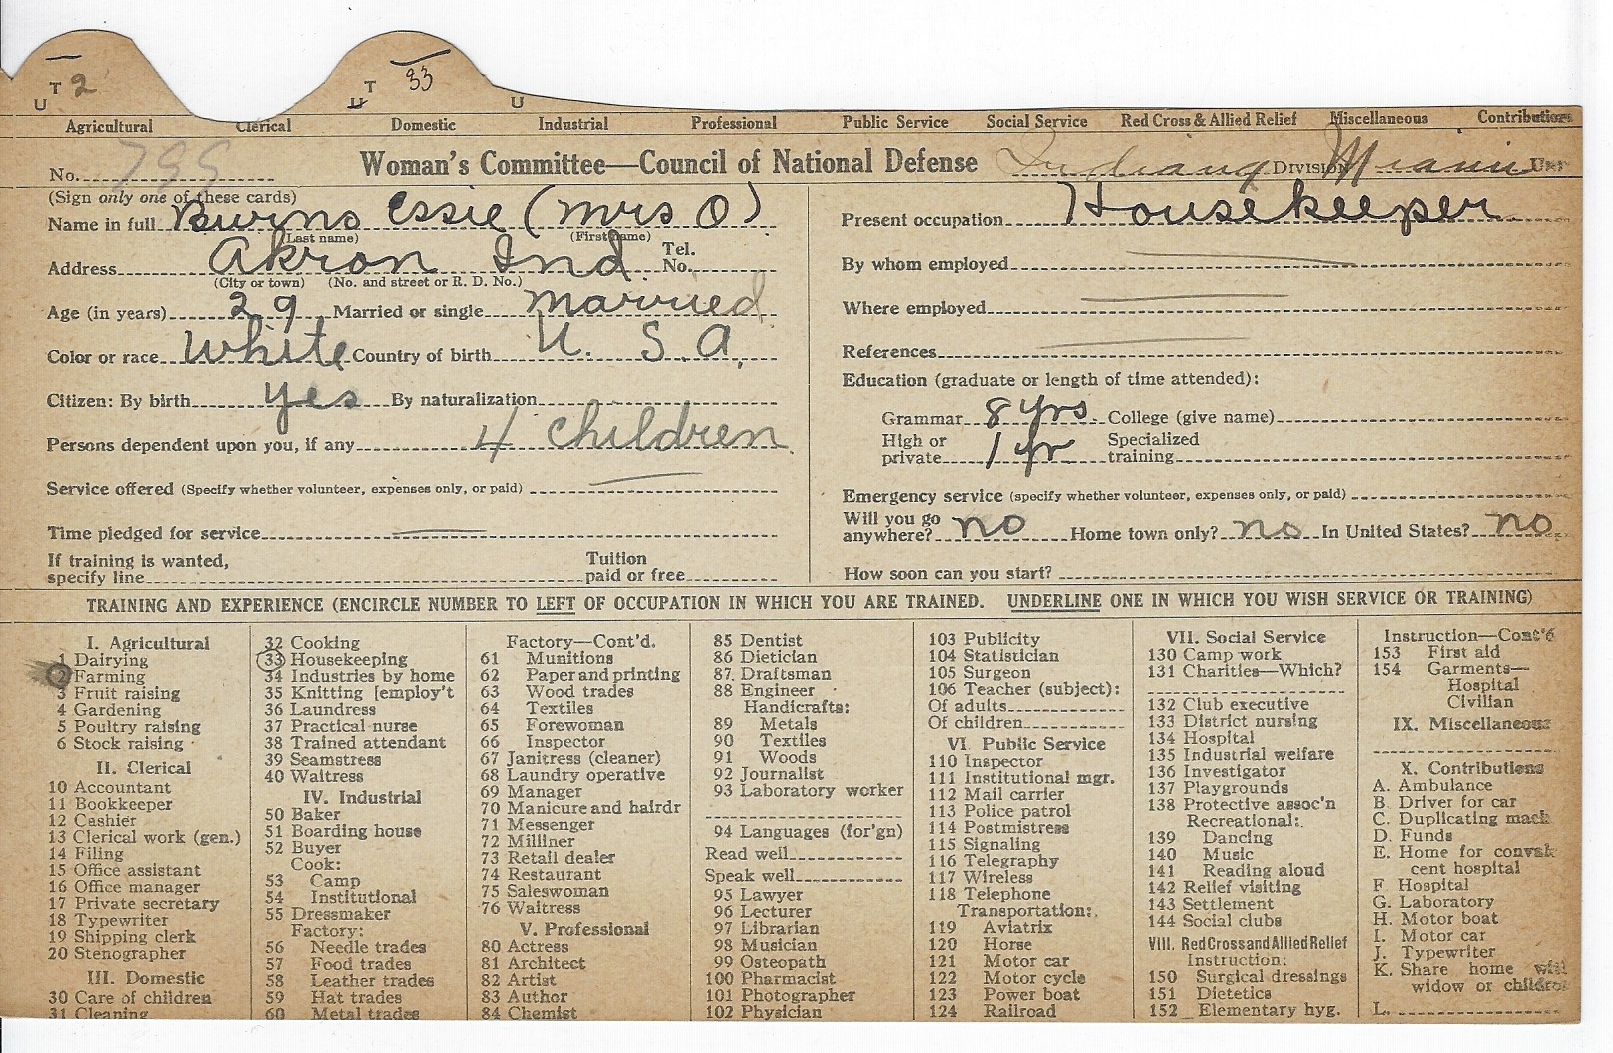 T 2 T 33
U U U
Agricultural Clerical Domestic Industrial Professional Public Service Social Service Red Cross & Allied Relief Miscellaneous Contributions
No. Woman's Committee—Council of National Defense Indiana Division Miami Unit
(Sign only one of these cards)
Name in full Burns Essie (Mrs O)
(Last name) (First name)
Address Akron Ind Tel. No.
(City or town) (No. and street or R. D. No.)
Age (in years) 29 Married or single married
Color or race White Country of birth U. S. A.
Citizen: By birth yes By naturalization
Persons dependent upon you, if any 4 children
Service offered (Specify whether volunteer, expenses only, or paid)
Time pledged for service
If training is wanted, specify line Tuition paid or free
Present occupation Housekeeper
By whom employed
Where employed
References
Education (graduate or length of time attended):
Grammar 8 yrs College (give name)
High or private 1 yr Specialized training
Emergency service (specify whether volunteer, expenses only, or paid)
Will you go anywhere? no Home town only? no In United States? no
How soon can you start?
TRAINING AND EXPERIENCE (ENCIRCLE NUMBER TO LEFT OF OCCUPATION IN WHICH YOU ARE TRAINED. UNDERLINE ONE IN WHICH YOU WISH SERVICE OR TRAINING)
I. Agricultural
1 Dairying
2 Farming
3 Fruit raising
4 Gardening
5 Poultry raising
6 Stock raising
II. Clerical
10 Accountant
11 Bookkeeper
12 Cashier
13 Clerical work (gen.)
14 Filing
15 Office assistant
16 Office manager
17 Private secretary
18 Typewriter
19 Shipping clerk
20 Stenographer
III. Domestic
30 Care of children
31 Cleaning
32 Cooking
33 Housekeeping
34 Industries by home
35 Knitting [employ't
36 Laundress
37 Practical nurse
38 Trained attendant
39 Seamstress
40 Waitress
IV. Industrial
50 Baker
51 Boarding house
52 Buyer
Cook:
53 Camp
54 Institutional
55 Dressmaker
Factory:
56 Needle trades
57 Food trades
58 Leather trades
59 Hat trades
60 Metal trades
Factory—Cont'd.
61 Munitions
62 Paper and printing
63 Wood trades
64 Textiles
65 Forewoman
66 Inspector
67 Janitress (cleaner)
68 Laundry operative
69 Manager
70 Manicure and hairdr
71 Messenger
72 Milliner
73 Retail dealer
74 Restaurant
75 Saleswoman
76 Waitress
V. Professional
80 Actress
81 Architect
82 Artist
83 Author
84 Chemist
85 Dentist
86 Dietician
87. Draftsman
88 Engineer
Handicrafts:
89 Metals
90 Textiles
91 Woods
92 Journalist
93 Laboratory worker
94 Languages (for'gn)
Read well
Speak well
95 Lawyer
96 Lecturer
97 Librarian
98 Musician
99 Osteopath
100 Pharmacist
101 Photographer
102 Physician
103 Publicity
104 Statistician
105 Surgeon
106 Teacher (subject):
Of adults
Of children
VI. Public Service
110 Inspector
111 Institutional mgr.
112 Mail carrier
113 Police patrol
114 Postmistress
115 Signaling
116 Telegraphy
117 Wireless
118 Telephone
Transportation:
119 Aviatrix
120 Horse
121 Motor car
122 Motor cycle
123 Power boat
124 Railroad
VII. Social Service
130 Camp work
131 Charities—Which?
132 Club executive
133 District nursing
134 Hospital
135 Industrial welfare
136 Investigator
137 Playgrounds
138 Protective assoc'n
Recreational:
139 Dancing
140 Music
141 Reading aloud
142 Relief visiting
143 Settlement
144 Social clubs
VIII. Red Cross and Allied Relief
Instruction:
150 Surgical dressings
151 Dietetics
152 Elementary hyg.
Instruction—Cont'd
153 First aid
154 Garments—
Hospital
Civilian
IX. Miscellaneous
X. Contributions
A. Ambulance
B. Driver for car
C. Duplicating mach
D. Funds
E. Home for convales
cent hospital
F. Hospital
G. Laboratory
H. Motor boat
I. Motor car
J. Typewriter
K. Share home with
widow or children
L.